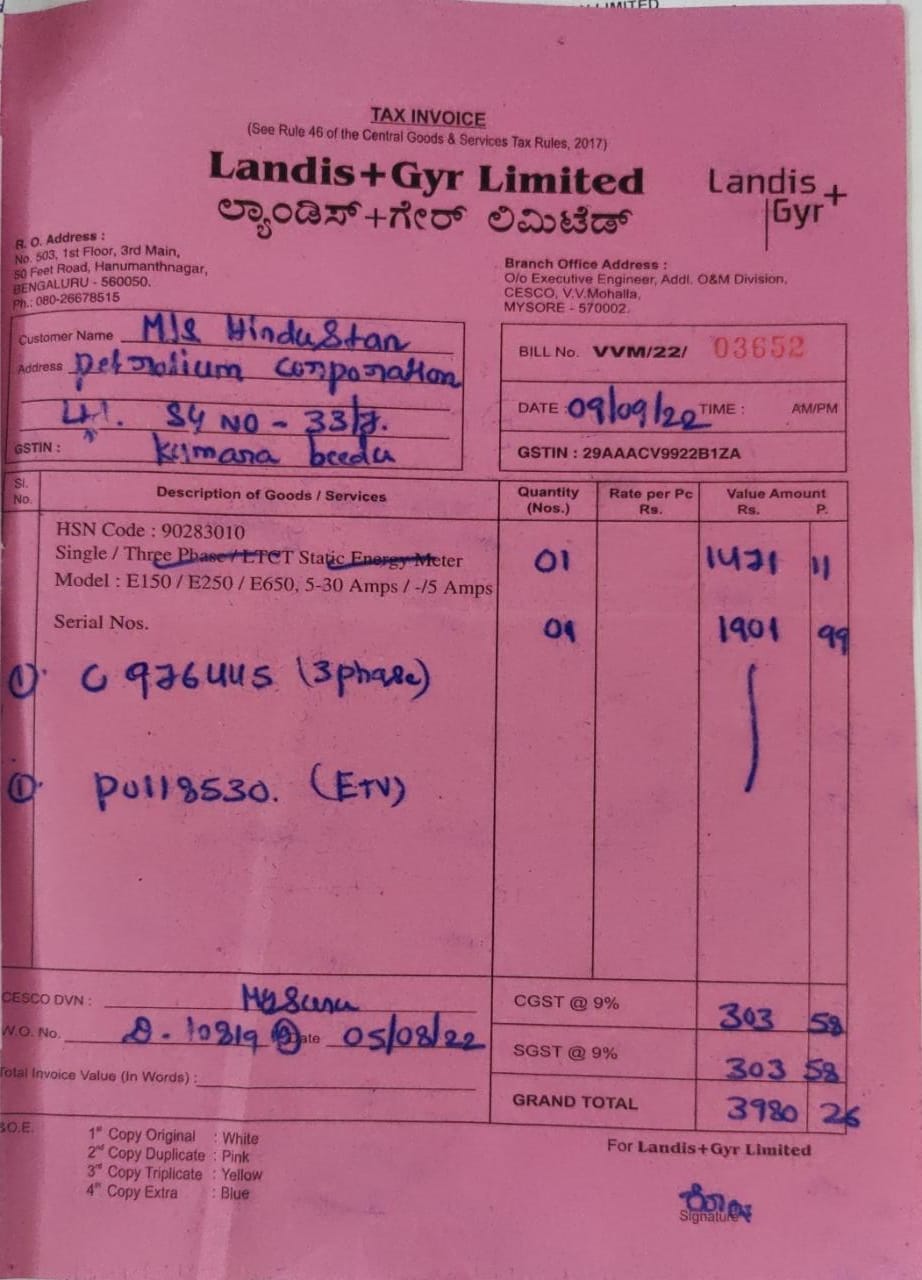 LIMITED
TAX INVOICE
(See Rule 46 of the Central Goods & Services Tax Rules, 2017)
Landis+Gyr Limited
ಲ್ಯಾಂಡಿಸ್+ಗೇರ್ ಲಿಮಿಟೆಡ್
Landis
Gyr+
R. O. Address :
No. 503, 1st Floor, 3rd Main,
50 Feet Road, Hanumanthnagar,
BENGALURU - 560050.
Ph.: 080-26678515
Branch Office Address :
O/o Executive Engineer, Addl. O&M Division,
CESCO, V.V.Mohalla,
MYSORE - 570002.
Customer Name M/S Hindustan
Address Petrolium Corporation
Ltd. SY NO - 33/7.
GSTIN : Kumara beedu
BILL No. VVM/22/ 03652
DATE : 09/09/22 TIME : AM/PM
GSTIN : 29AAACV9922B1ZA
Sl. No. Description of Goods / Services Quantity (Nos.) Rate per Pc Rs. Value Amount Rs. P.
HSN Code : 90283010
Single / Three Phase / LTCT Static Energy Meter 01 1471 11
Model : E150 / E250 / E650, 5-30 Amps / -/5 Amps
Serial Nos. 01 1901 99
1). C 976445 (3phase)
1). P0118530. (ETV)
CESCO DVN : Mysuru
W.O. No. D - 10819 Date 05/08/22
Total Invoice Value (In Words) :
CGST @ 9% 303 58
SGST @ 9% 303 58
GRAND TOTAL 3980 26
B.O.E.
1st Copy Original : White
2nd Copy Duplicate : Pink
3rd Copy Triplicate : Yellow
4th Copy Extra : Blue
For Landis+Gyr Limited
Signature